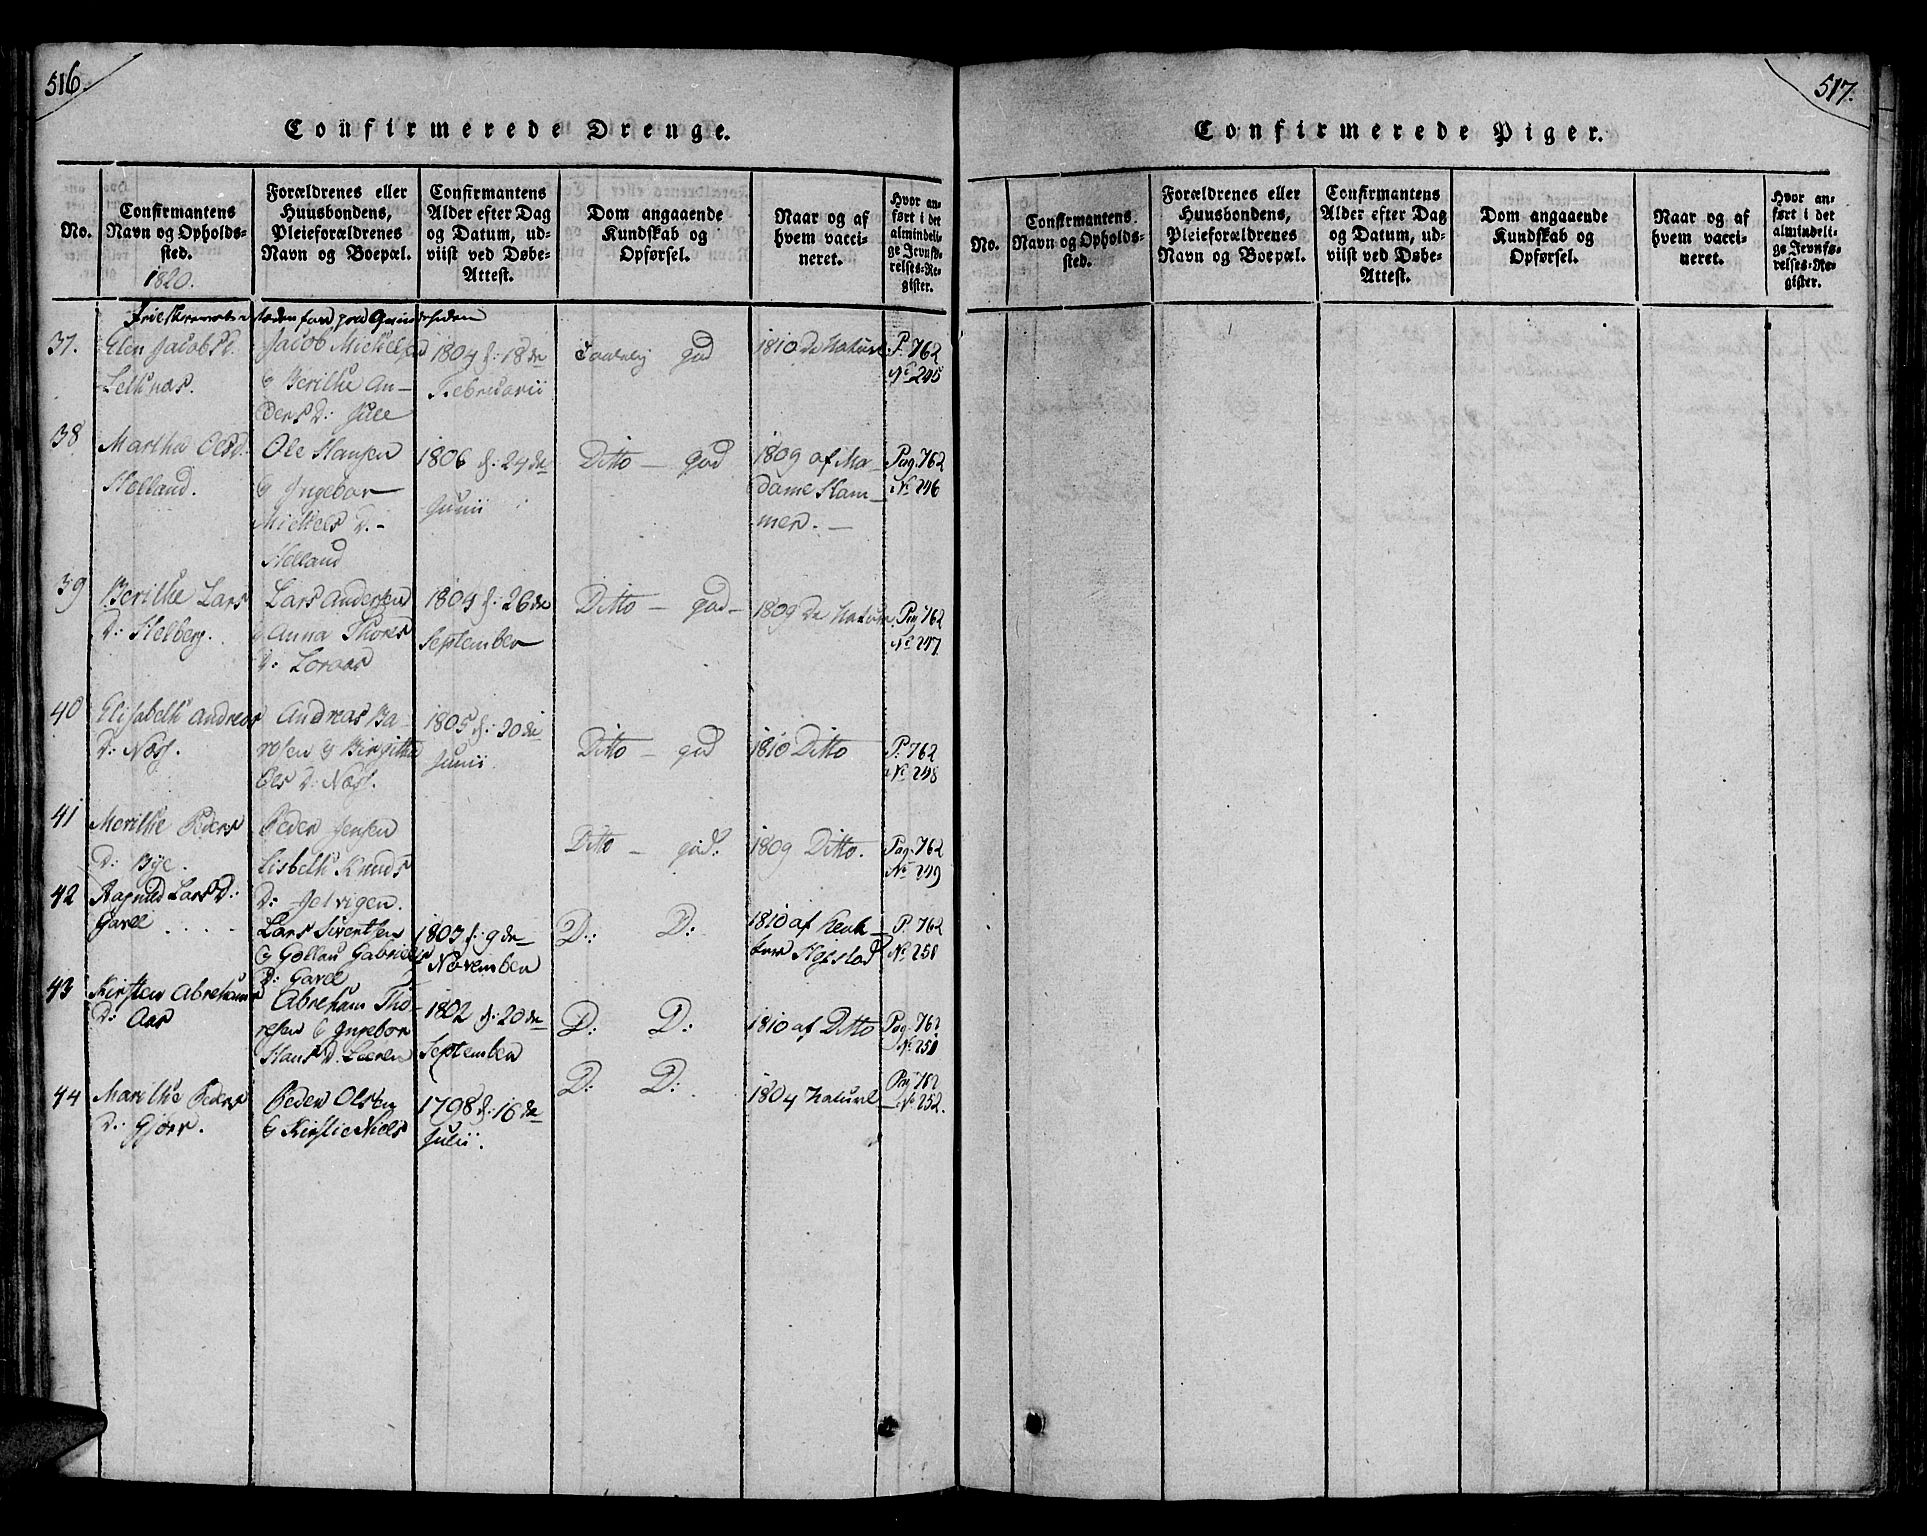 516.
Confirmerede Drenge.
No.
Confirmantens
Navn og Opholds-
sted.
1820.
Forældrenes eller
Huusbondens,
Pleieforældrenes
Navn og Boepæl.
Confirmantens
Alder efter Dag
og Datum, ud-
viist ved Døbe-
Attest.
Dom angaaende
Kundskab og
Opførsel.
Naar og af
hvem vacci-
neret.
Hvor an-
ført i det
almindeli-
ge Jevnfø-
relses-Re-
gister.
37.
Elen Jacobs d.
Lethnæs.
Jacob Michelsen
& Berithe An-
ders D: Jule
1804 d: 18de
Februarii
god
1810 de Naturl
P. 762
No 245
38
Martha Olsd.
Helland.
Ole Hansen
& Ingebor
Michels D. -
Helland
1806 d: 24de
Junii
Ditto - god
1809 af Ma-
dame Ham-
mer. -
Pag. 762
No 246
39
Berithe Lars
D: Helberg.
Lars Andersen
& Anna Thores
D: Loraas
1804 d: 26de
September
Ditto - god -
1809 de Natur.
Pag 762
No 247.
40
Elisabeth Andreas
D: Næss.
Andreas Ba-
rosen & Birgitha
Ols D: Næss.
1805 d: 20de
Junii
Ditto - god
1810 Ditto
P. 762
No 248
41
Merithe Peders
D: Bye.
Peder Jensen
Lisbeth Knuds
D: Jelvigen.
Ditto - god:
1809 Ditto.
Pag. 762
No 249
42
Ragnild Lars D:
Garel . . . .
Lars Sivertsen
& Gollau Gabriels
D: Garel
1803 d: 9de
November
D: D:
1810 af
Hegstad
P. 762
No 250
43
Kirsten Abrehams
D: Aas
Abreham Tho-
resen & Ingebor
Hans D. Leeren
1802 d: 20de
September
D: D:
1810 af Ditto
Pag. 762
No 251
44
Marithe Peders
D: Gjørv.
Peder Olsen
& Kirstie Niels
1798 d: 16de
Julii.
D: D:
1804 Naturl
Pag 762
No. 252.
517.
Confirmerede Piger.
No.
Confirmantens
Navn og Opholds-
sted.
Forældrenes eller
Huusbondens,
Pleieforældrenes
Navn og Boepæl.
Confirmantens
Alder efter Dag
og Datum, ud-
viist ved Døbe-
Attest.
Dom angaaende
Kundskab og
Opførsel.
Naar og af
hvem vacci-
neret.
Hvor an-
ført i det
almindeli-
ge Jevnfø-
relses-Re-
gister.